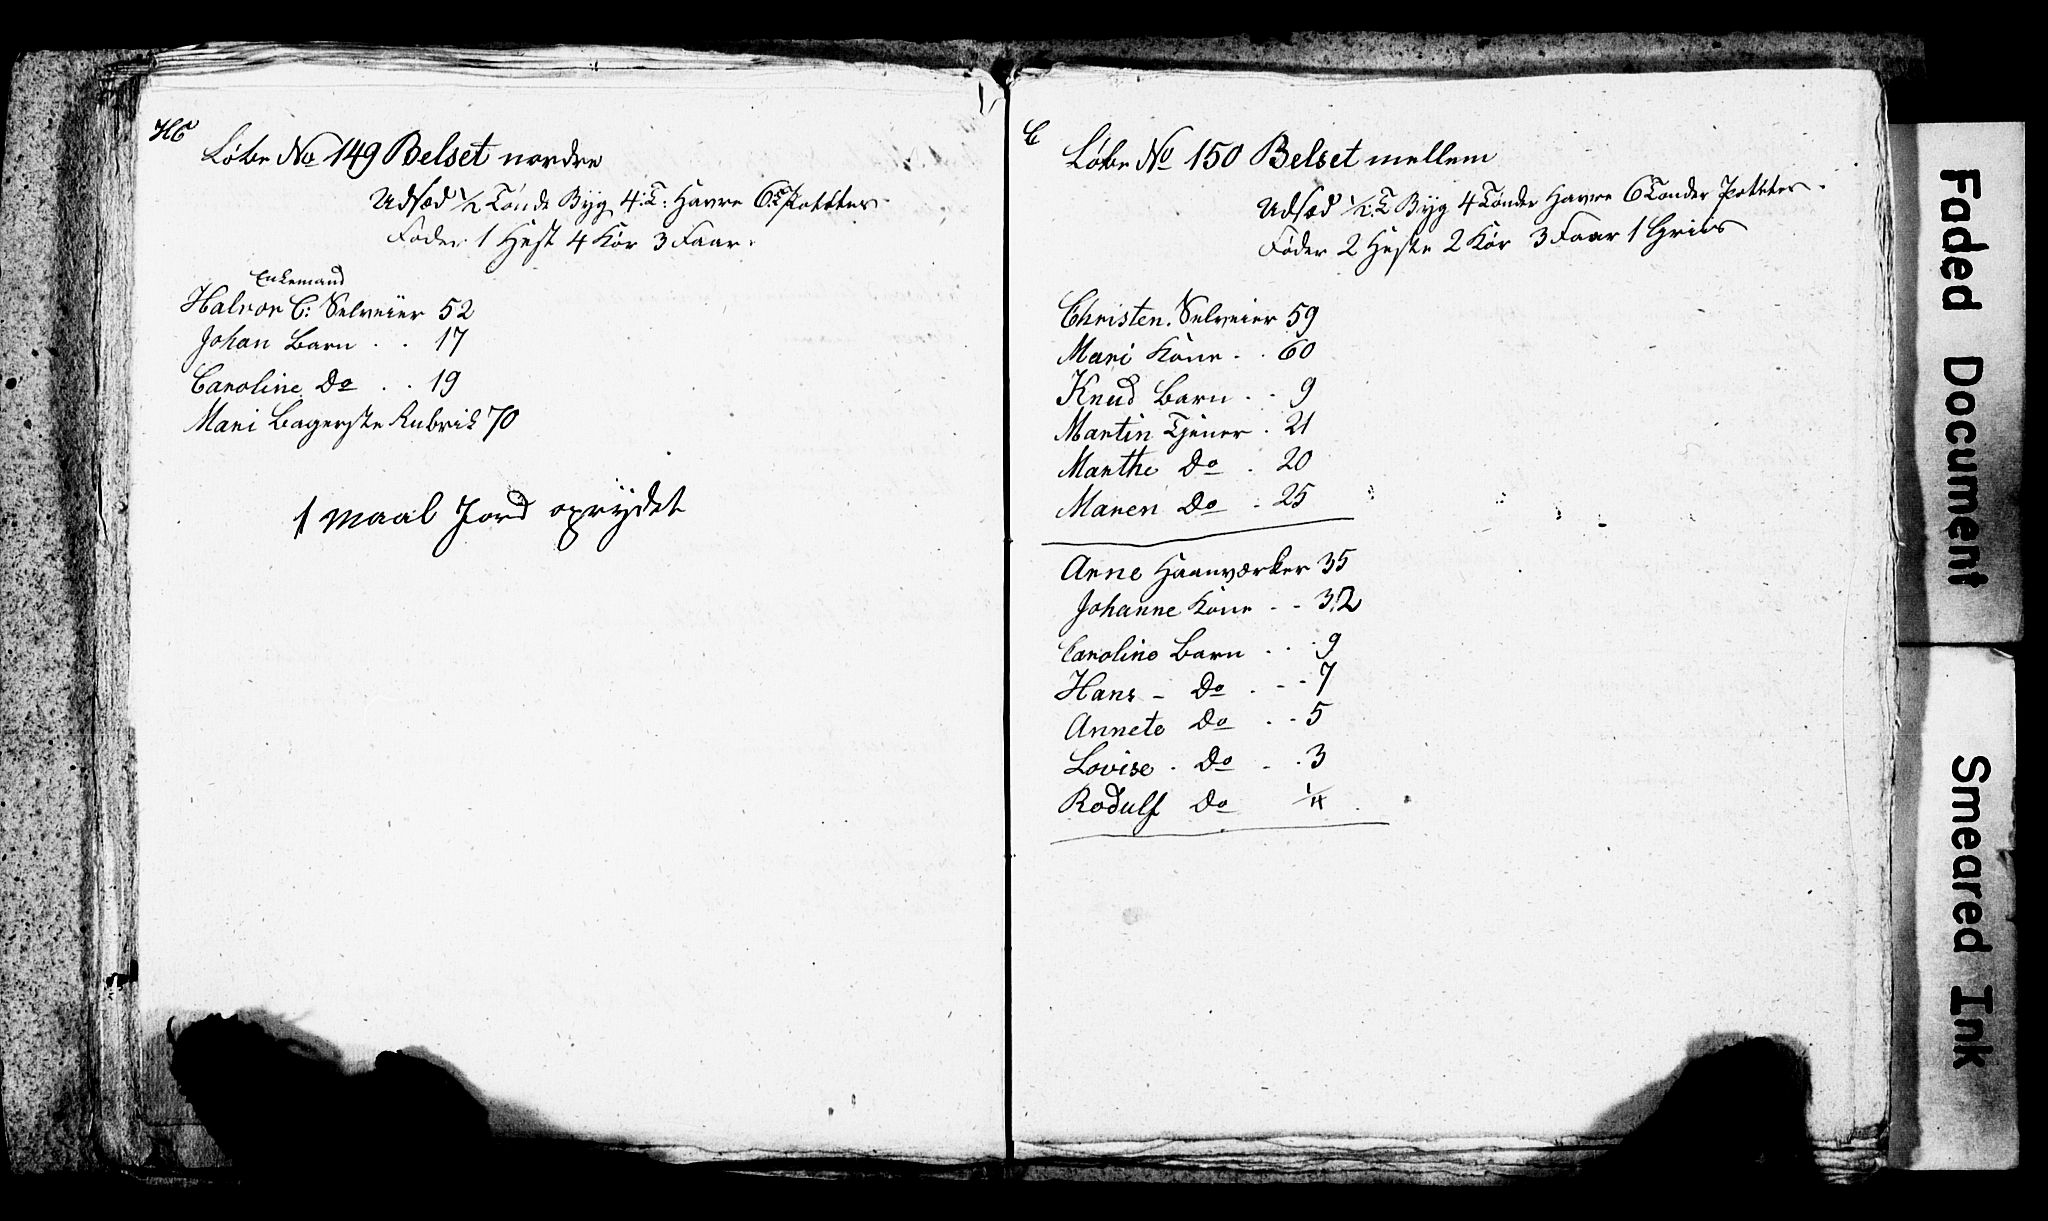 HC
Løbe No 149 Belset nordre
Udsæd 1/2 Tønde Byg 4 T: Havre 6 T Potetes
Føder 1 Hest 4 Kør 3 Faar.
Enkemand
Halvor C: Selveier 52
Johan Barn . . 17
Caroline Do . . 19
Mari Bagerste Rubrik 70
1 Maal Jord oprydet
C
Løbe No 150 Belset mellem
Udsæd 1/2 T Byg 4 Tønder Havre 6 Tønder Potetes.
Føder 2 Heste 2 Kør 3 Faar 1 Griis
Christen. Selveier 59
Mari Kone . . 60
Knud Barn . . 9
Martin Tjener . 21
Marthe Do . 20
Maren Do . 25
Arne Haanværker 35
Johanne Kone - - 32
Caroline Barn . . . 9
Hans - Do . - - 7
Annete Do . . - 5
Lovise . Do - . 3
Rodulf Do 1/4
Faded Document
Smeared Ink